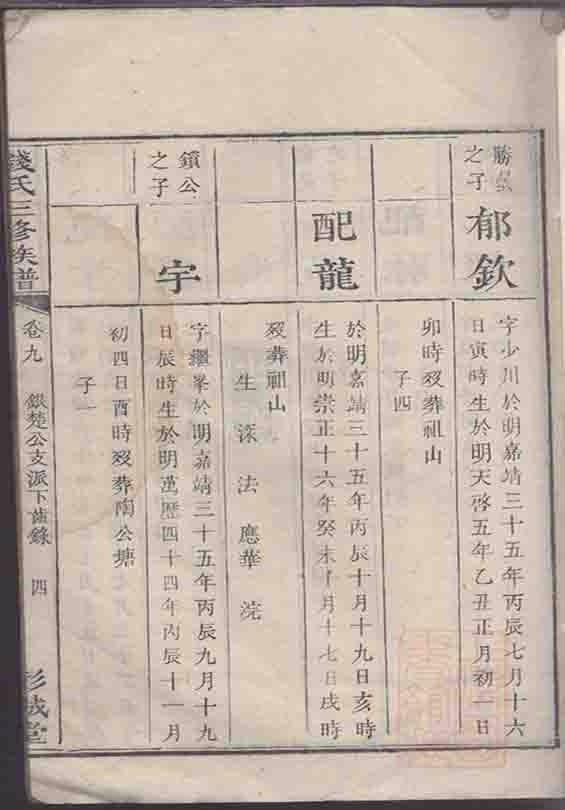 勝
之子
郁欽
字少川於明嘉靖三十五年丙辰七月十六
日寅時生於明天啓五年乙丑正月初一日
卯時歿葬祖山
子四
配龍
於明嘉靖三十五年丙辰十月十九日亥時
生於明崇正十六年癸未十月十七日戌時
歿葬祖山
生 深 法 應華 浣
鎖公
之子
宇
字繼峯於明嘉靖三十五年丙辰九月十九
日辰時生於明萬歷四十四年丙辰十一月
初四日酉時歿葬南公塘
子一
錢氏三修族譜
卷九
銀楚公支派下齒錄
四
彭城堂